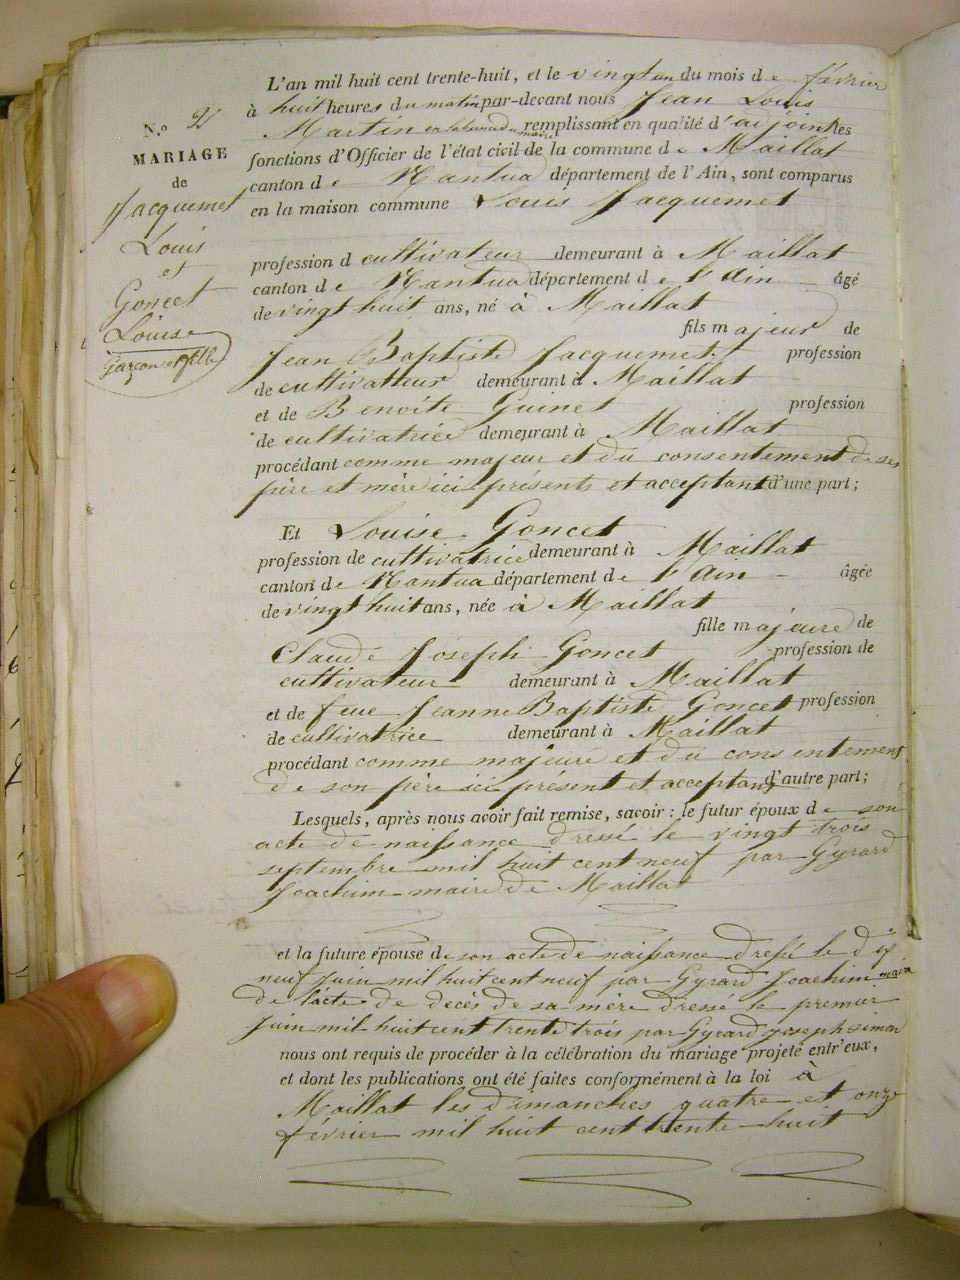 L'an mil huit cent trente-huit, et le vingt un du mois de février
à huit heures du matin par-devant nous Jean Louis
N.o 2
Martin remplissant en qualité d'adjoint les
maire
MARIAGE
fonctions d'Officier de l'état civil de la commune de Maillat
de
canton de Nantua département de l'Ain, sont comparus
Jacquemet
en la maison commune Louis Jacquemet
Louis
et
profession d cultivateur demeurant à Maillat
canton de Nantua département de l'Ain âgé
Goncet
de vingt huit ans, né à Maillat
Louise
fils majeur de
Garçon et fille
Jean Baptiste Jacquemet profession
de cultivatteur demeurant à Maillat
et de Benoite Guinet profession
de cultivatrice demeurant à Maillat
procédant comme majeur et du consentement de ses
père et mère ici présents et acceptant d'une part;
Et Louise Goncet
profession de cultivatrice demeurant à Maillat
canton de Nantua département de l'Ain âgée
de vingt huit ans, née à Maillat
fille majeure de
Claude Joseph Goncet profession de
cultivateur demeurant à Maillat
et de feue Jeanne Baptiste Goncet profession
de cultivatrice demeurant à Maillat
procédant comme majeure et du consentement
de son père ici présent et acceptant d'autre part;
Lesquels, après nous avoir fait remise, savoir: le futur époux de son
acte de naissance dressé le vingt trois
septembre mil huit cent neuf par Gyrard
Joachim maire de Maillat
et la future épouse de son acte de naissance dressé le dix
neuf Juin mil huit cent neuf par Gyrard Joachim maire
de l'acte de décès de sa mère dressé le premier
Juin mil huit cent trente trois par Gyrard joseph simon
nous ont requis de procéder à la célébration du mariage projeté entr'eux,
et dont les publications ont été faites conformément à la loi à
Maillat les dimanches quatre et onze
février mil huit cent trente huit